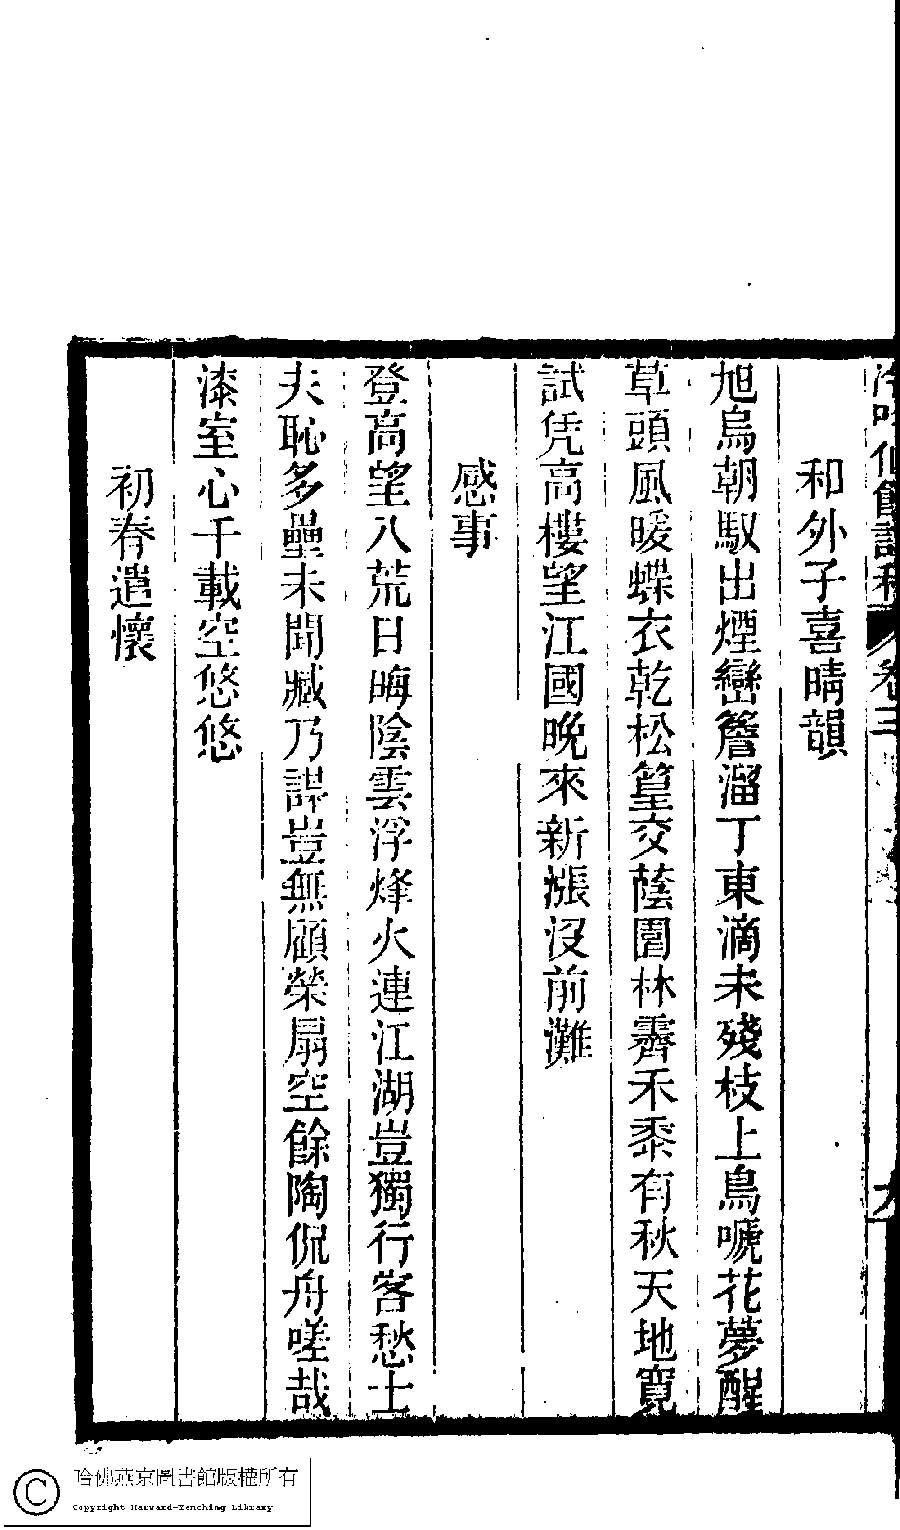 和外子喜晴韻
旭烏朝馭出煙巒簷溜丁東滴未殘枝上鳥嗁花夢醒
草頭風暖蝶衣乾松篁交蔭園林霽禾黍有秋天地寬
試凭高樓望江國晚來新漲沒前灘
感事
登高望八荒日晦陰雲浮烽火連江湖豈獨行客愁士
夫恥多壘未聞臧乃謀豈無顧榮扇空餘陶侃舟嗟哉
漆室心千載空悠悠
初春遣懷
哈佛燕京圖書館版權所有
Copyright Harvard-Yenching Library